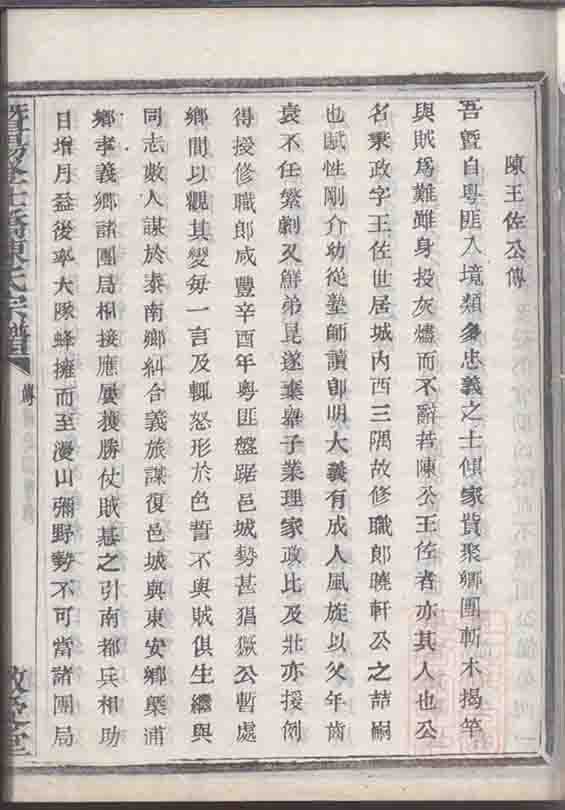 陳王佐公傳
吾暨自粵匪入境類多忠義之士傾家貲聚鄉團斬木揭竿
與賊爲難雖身投灰燼而不辭若陳公王佐者亦其人也公
名秉政字王佐世居城內西三隅故修職郎曉軒公之喆嗣
也賦性剛介幼從塾師讀卽明大義有成人風旋以父年齒
衰不任繁劇又鮮弟昆遂棄舉子業理家政比及壯亦援例
得授修職郎咸豐辛酉年粵匪盤踞邑城勢甚猖獗公暫處
鄉間以觀其變每一言及輒怒形於色誓不與賊俱生繼與
同志數人謀於泰南鄉糾合義旅謀復邑城與東安鄉槩浦
鄉孝義鄉諸團局相接應屢獲勝仗賊惎之引南都兵相助
日增月益後率大隊蜂擁而至漫山彌野勢不可當諸團局
陳氏宗譜
傳
敬愛堂